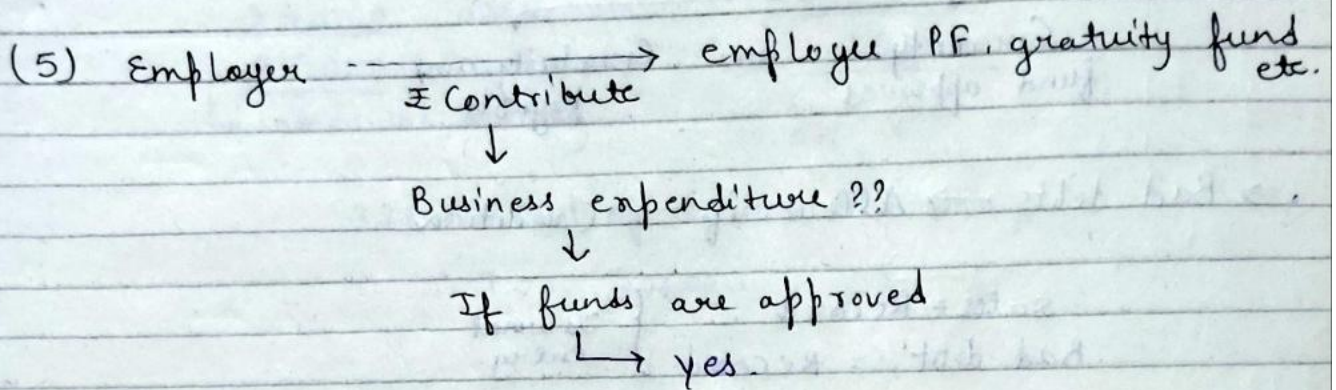 (5) Employer ----------> employee PF, gratuity fund etc.
₹ Contribute
↓
Business expenditure ??
↓
If funds are approved
↳ yes.